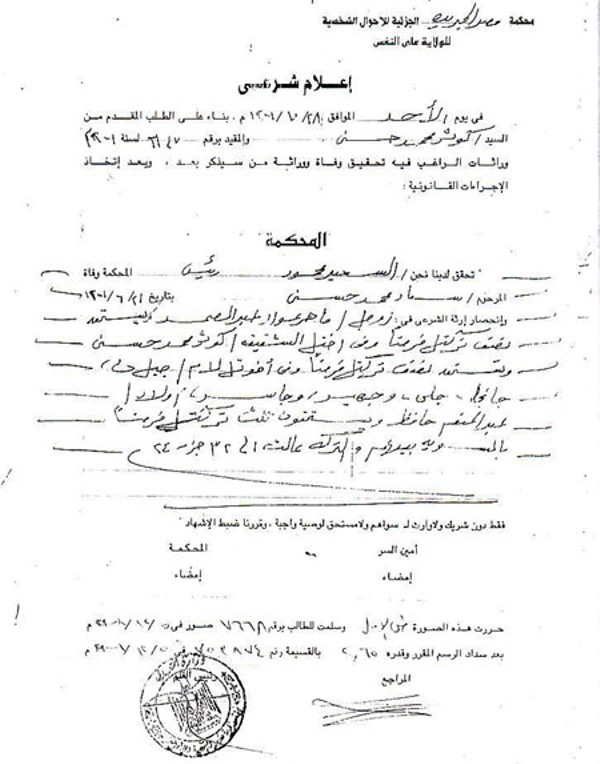 محكمة مصر الجديدة الجزئية للأحوال الشخصية
للولاية على النفس
إعلام شرعى
فى يوم الأحد الموافق ٢٨/١٠/٢٠٠١ م . بناء على الطلب المقدم من
السيد / كوثر محمد حسنى والمقيد برقم لسنة ٢٠٠١
وراثات الراغب فيه تحقيق وفاة ووراثة من سيذكر بعد ، وبعد إتخاذ
الإجراءات القانونية :
المحكمة
تحقق لدينا نحن / السعيد محمود رئيس المحكمة وفاة
المرحوم / سعاد محمد حسنى بتاريخ ٢١/٦/٢٠٠١
وإنحصار إرثه الشرعى فى : زوجها / ماهر عواد عبد الصمد ويستحق
نصف تركتها فرضاً وفى أختها الشقيقة / كوثر محمد حسنى
وتستحق نصف تركتها فرضاً وفى أخوتها للأم / جيلى
جانجاه ، وجهير ، وجاسر ، أولاد /
عبد المنعم حافظ ويستحقون ثلث تركتها فرضاً
بالسوية بينهم والتركة عالت الى ٣٢ جزء ٢٤
فقط دون شريك ولاوارث لـ سواهم ولامستحق لوصية واجبة ، وقررنا ضبط الإشهاد
أمين السر المحكمة
إمضاء إمضاء
حررت هذه الصورة طبق الأصل وسلمت للطالب برقم ٧٦٦٨ صدور فى م
بعد سداد الرسم المقرر وقدره ٢,٦٥ بالقسيمة رقم فى م
المراجع
وزارة العدل
رئيس القلم